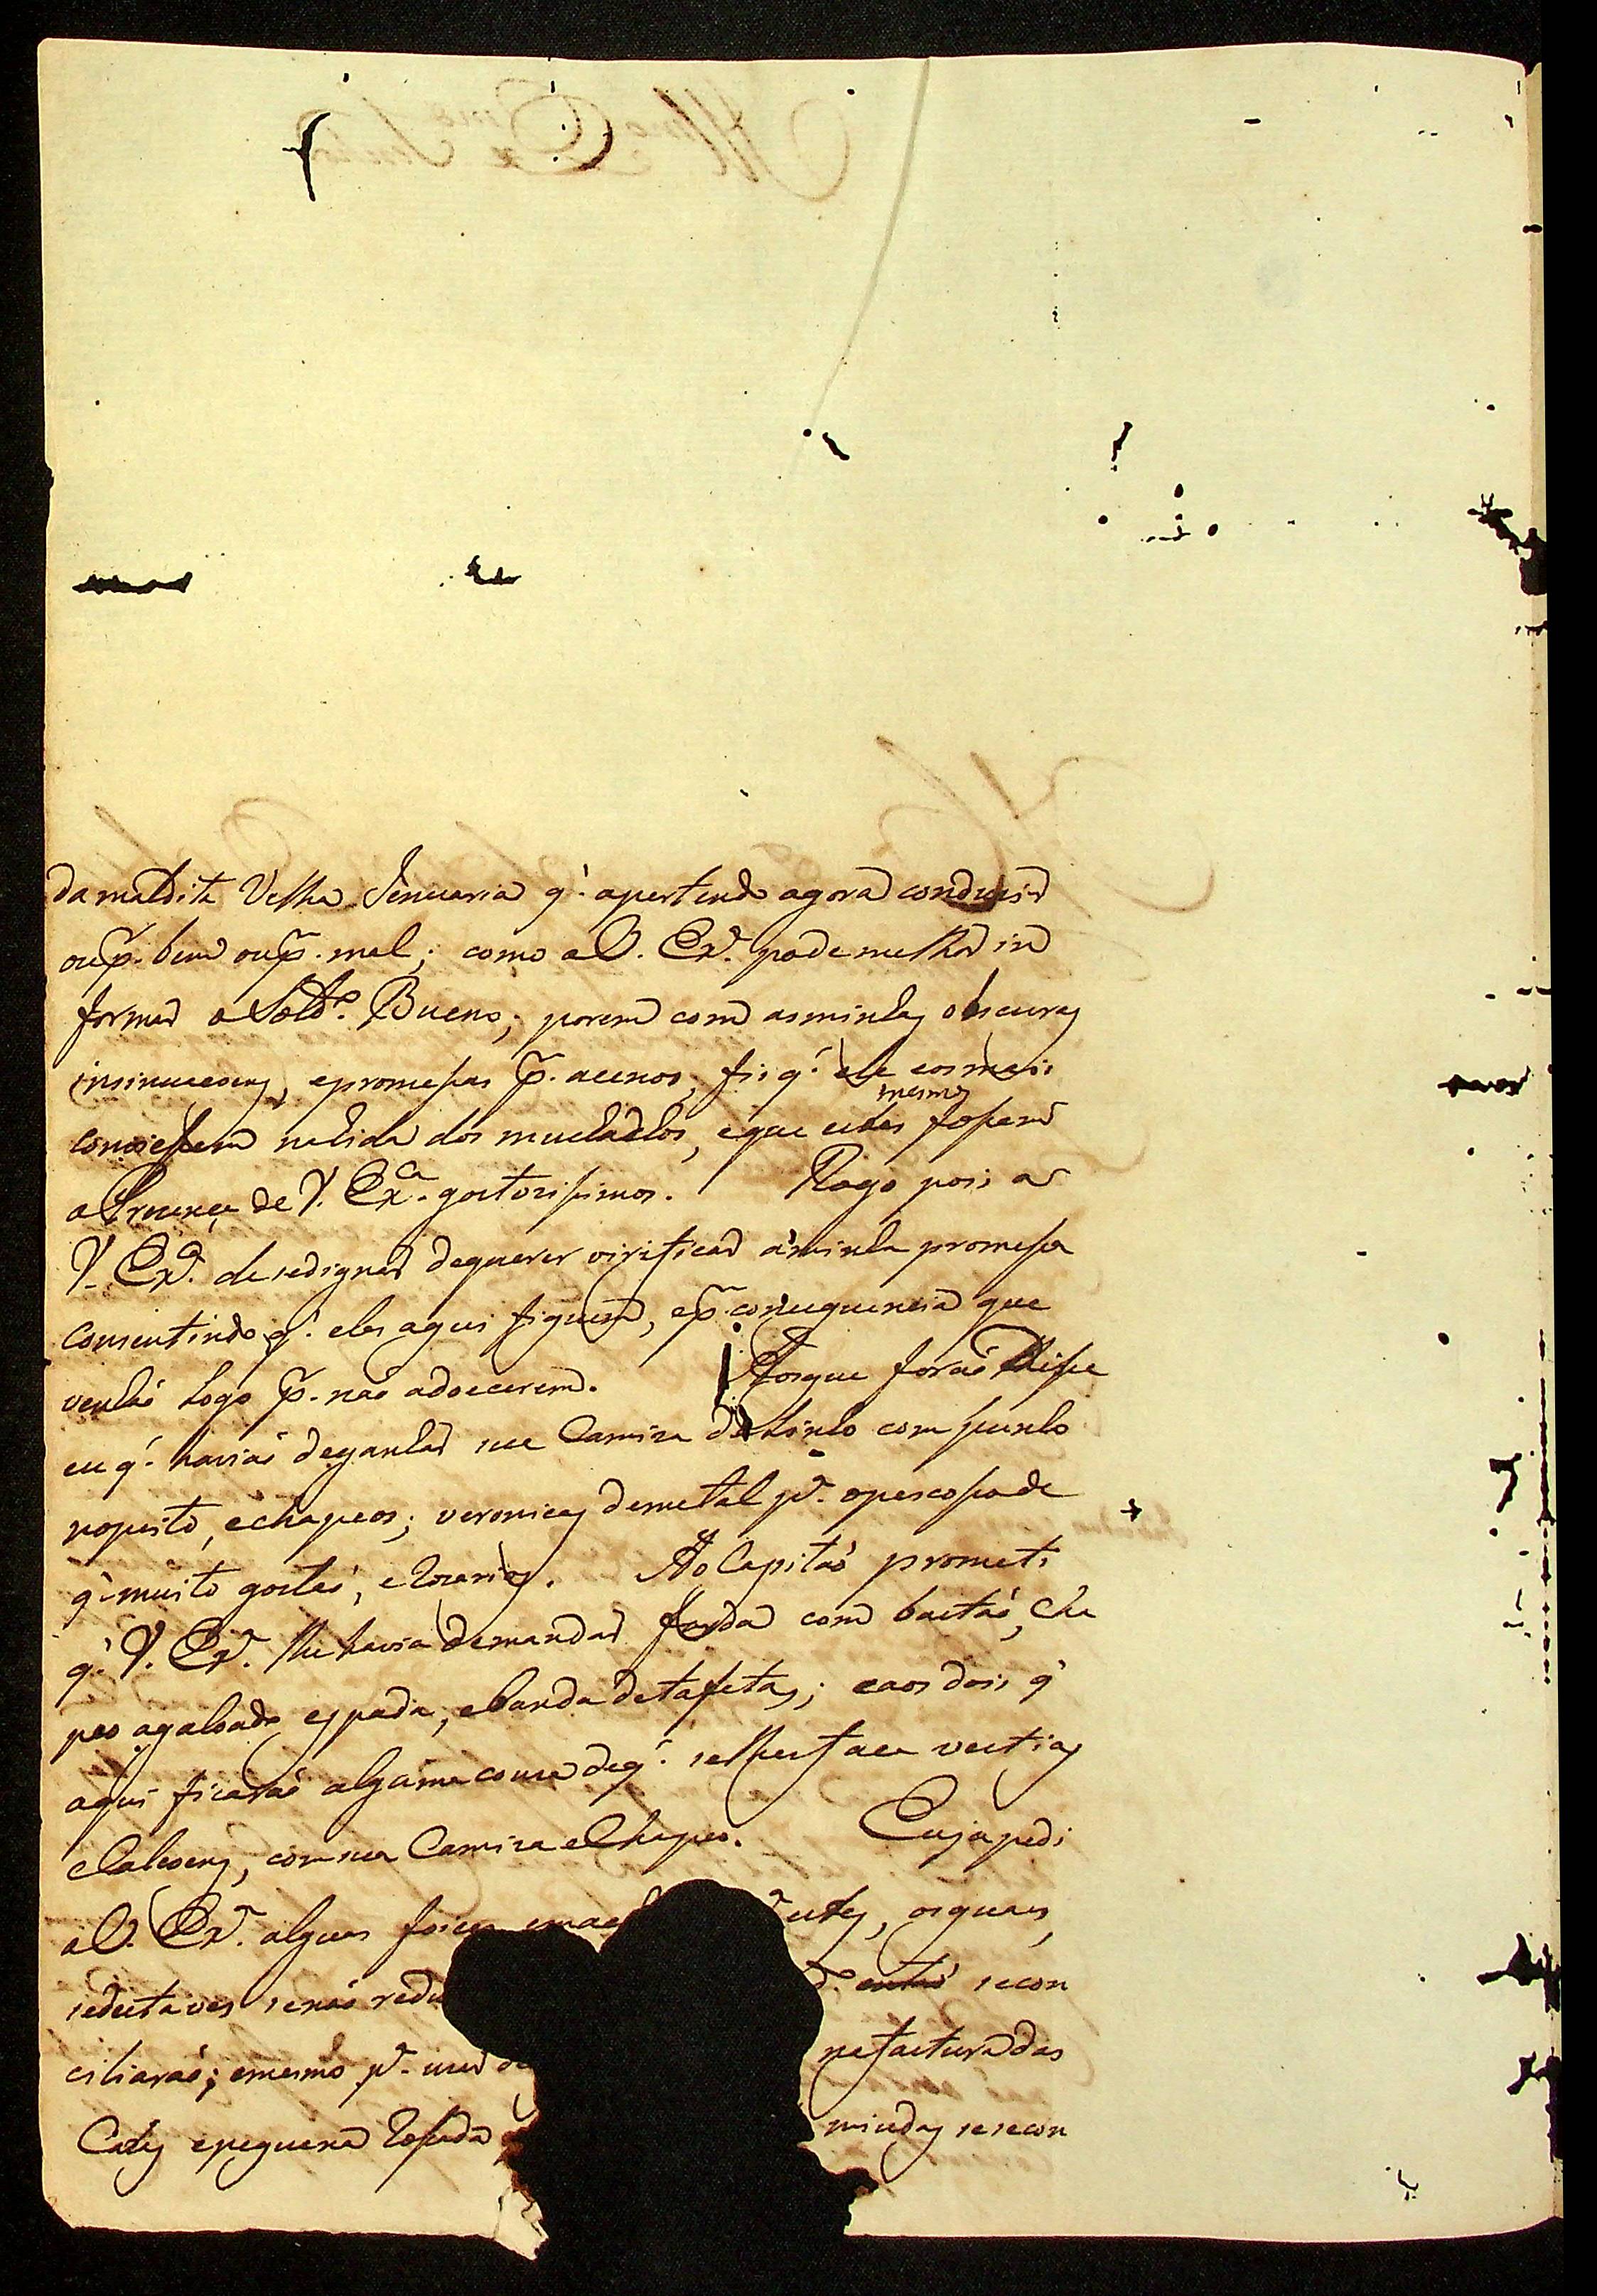 da maldita Velha Jenuaria q̃. apertendo agora conduzir
ou p̃. bem ou p̃. mal; como a V. Exª. pode melhor in
formar o Sold.º Bueno; porem com as minhas obscuras
insinuacoens, e promeças p̃. acenos, fis q̃. ele e os mais
conviessem na hida dos muchachos, e que estes mesmos fossem
a Prezença de V. Exca. gostozissimos. Rogo pois a
V. Exª. de se dignar de querer virificar a minha promessa
consentindo q̃. eles aqui fiquem, e p̃. consequencia que
venhaõ logo p̃. naõ adoecerem. Aos que foraõ disse
eu q̃. haviaõ de ganhar sua Camiza de Linho com punho
no peito, e chapeos; veronicas de metal pª. o pescosso de
q̃ muito gostaõ, e Rozarios. Ao Capitaõ prometi
q̃. V. Exª. lhe havia de mandar farda com bastaõ, cha
peo agaloado, espada, e banda de tafetas; e aos dois q̃
aqui ficaraõ alguma couza de q̃. se lhes faça vestias
e Calsoens, com sua Camiza e Chapeo. Eu ja pedi
a V. Exª. alguas foices os quais
se desta ves se naõ redu entaõ se con
ciliaraõ; e mesmo pª. na factura das
Cazas e pequena Rossada miudas se recon